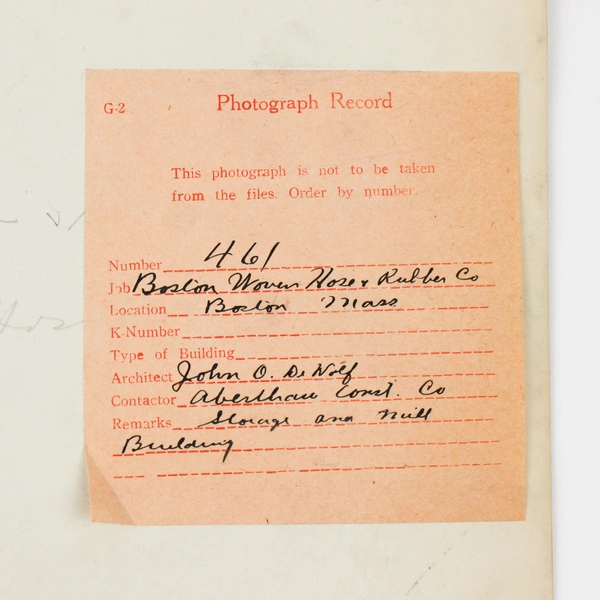 G-2 Photograph Record
This photograph is not to be taken
from the files. Order by number.
Number 461
Job Boston Woven Hose & Rubber Co
Location Boston Mass
K-Number
Type of Building
Architect John O. DeWolf
Contactor Aberthaw Const. Co
Remarks Storage and Mill
Building